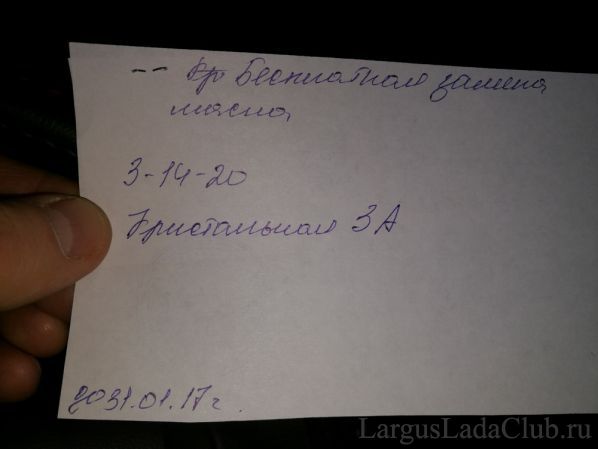 -- Бесплатная замена
масла
3-14-20
Кристальная 3А
до 31.01.17 г.
LargusLadaClub.ru